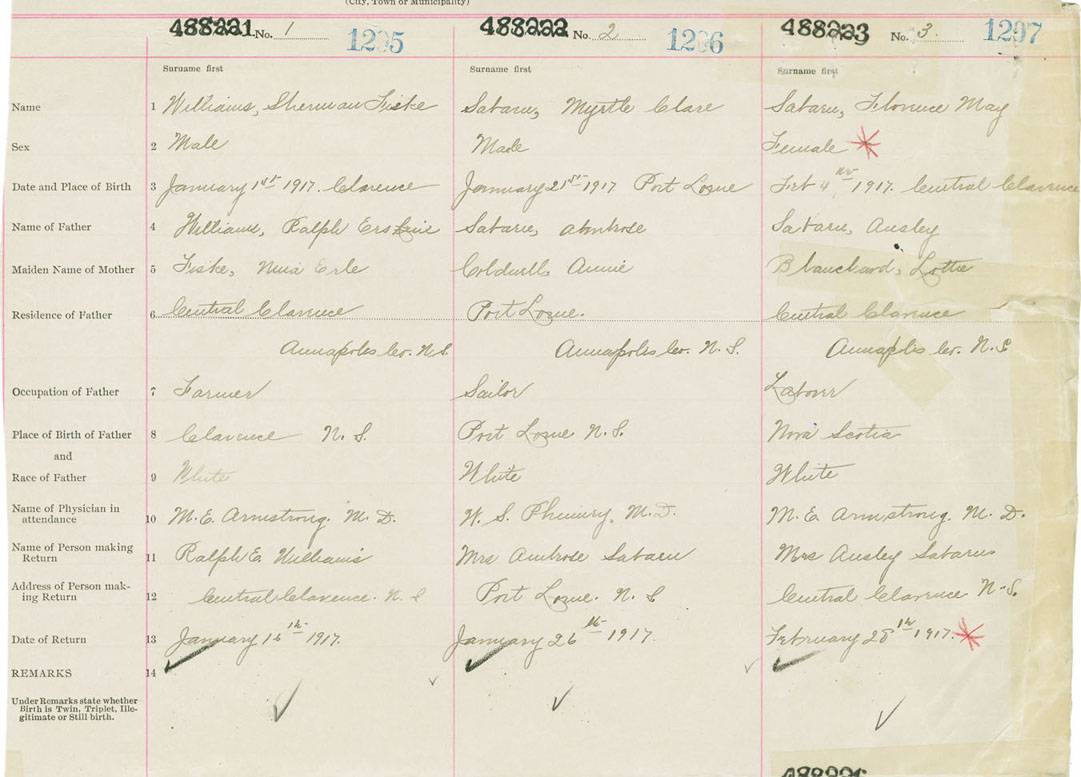 (City, Town or Municipality)
488221 No. 1 1295 488222 No. 2 1296 488223 No. 3 1297
Surname first Surname first Surname first
Name 1 Williams, Sherman Fiske Sabaru, Myrtle Clare Sabaru, Florence May
Sex 2 Male Male Female
Date and Place of Birth 3 January 1st 1917. Clarence January 21st 1917 Port Lorne Feb 4th 1917. Central Clarence
Name of Father 4 Williams, Ralph Erskine Sabaru, Ambrose Sabaru, Ansley
Maiden Name of Mother 5 Fiske, Erle Coldwell, Annie Blanchard, Lottie
Residence of Father 6 Central Clarence Port Lorne. Central Clarence
Annapolis Co. N.S. Annapolis Co. N.S. Annapolis Co. N.S
Occupation of Father 7 Farmer Sailor Laborer
Place of Birth of Father 8 Clarence N.S. Port Lorne N.S. Nova Scotia
and
Race of Father 9 White White White
Name of Physician in
attendance 10 M.E. Armstrong. M.D. W.S. Phinney, M.D. M.E. Armstrong. M.D.
Name of Person making
Return 11 Ralph E. Williams Mrs Ambrose Sabaru Mrs Ansley Sabaru
Address of Person mak-
ing Return 12 Central Clarence. N.S Port Lorne. N.S Central Clarence N.S.
Date of Return 13 January 16th 1917. January 26th 1917. February 28th 1917.
REMARKS 14
Under Remarks state whether
Birth is Twin, Triplet, Ille-
gitimate or Still birth.